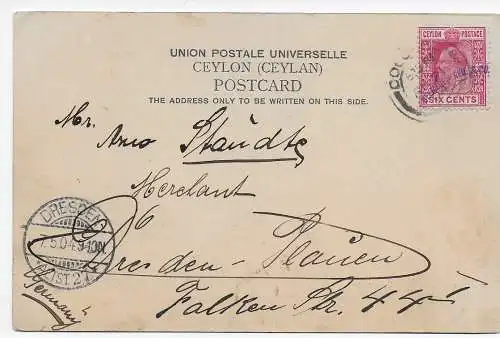 UNION POSTALE UNIVERSELLE
CEYLON (CEYLAN)
POSTCARD
THE ADDRESS ONLY TO BE WRITTEN ON THIS SIDE.
CEYLON POSTAGE
SIX CENTS
Mr. Arno Staudte
Merchant
Dresden-Plauen
Falken Str. 44
Germany
DRESDEN
7.5.04